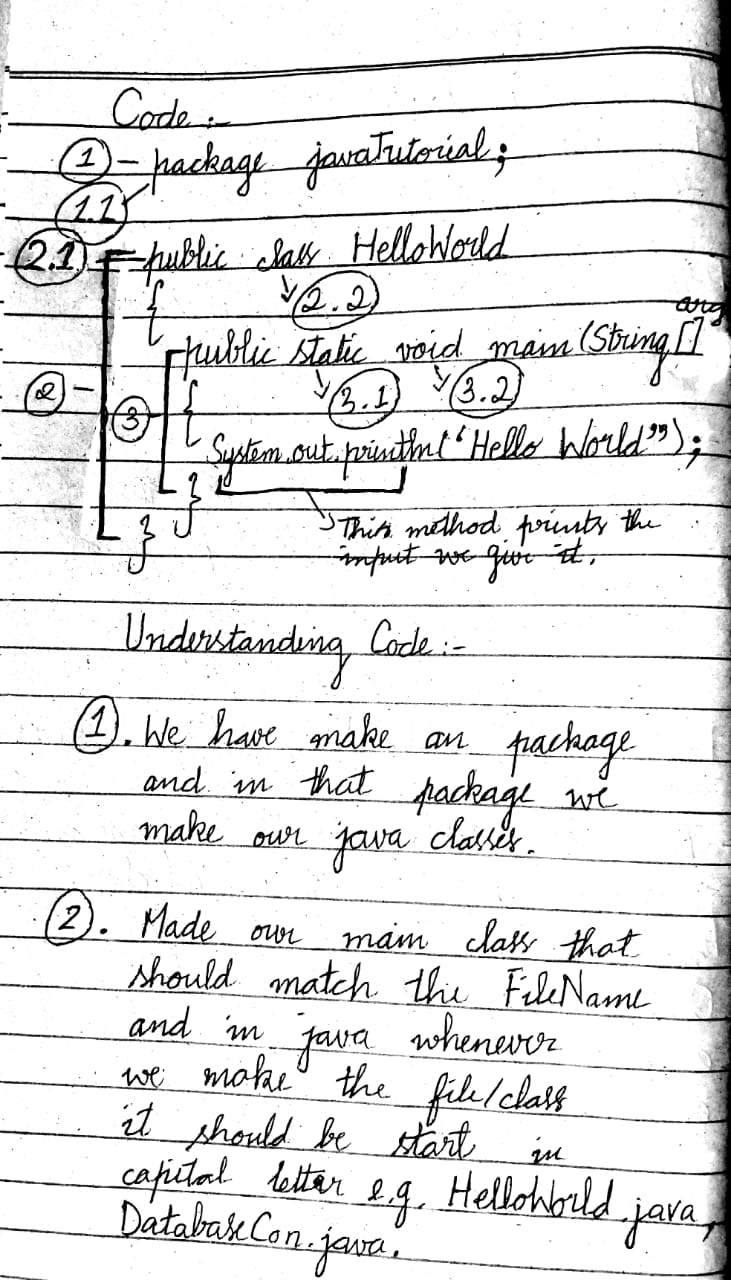 Code :-
① - package javaTutorial;
1.1
2.1 public class HelloWorld
{ 2.2
arg
public static void main (String[]
② - ③ { 3.1 3.2
System.out.println("Hello World");
}
} This method prints the
input we give it.
Understanding Code :-
①. We have make an package
and in that package we
make our java classes.
②. Made our main class that
should match the FileName
and in java whenever
we make the file/class
it should be start in
capital letter e.g. HelloWorld.java,
DatabaseCon.java.